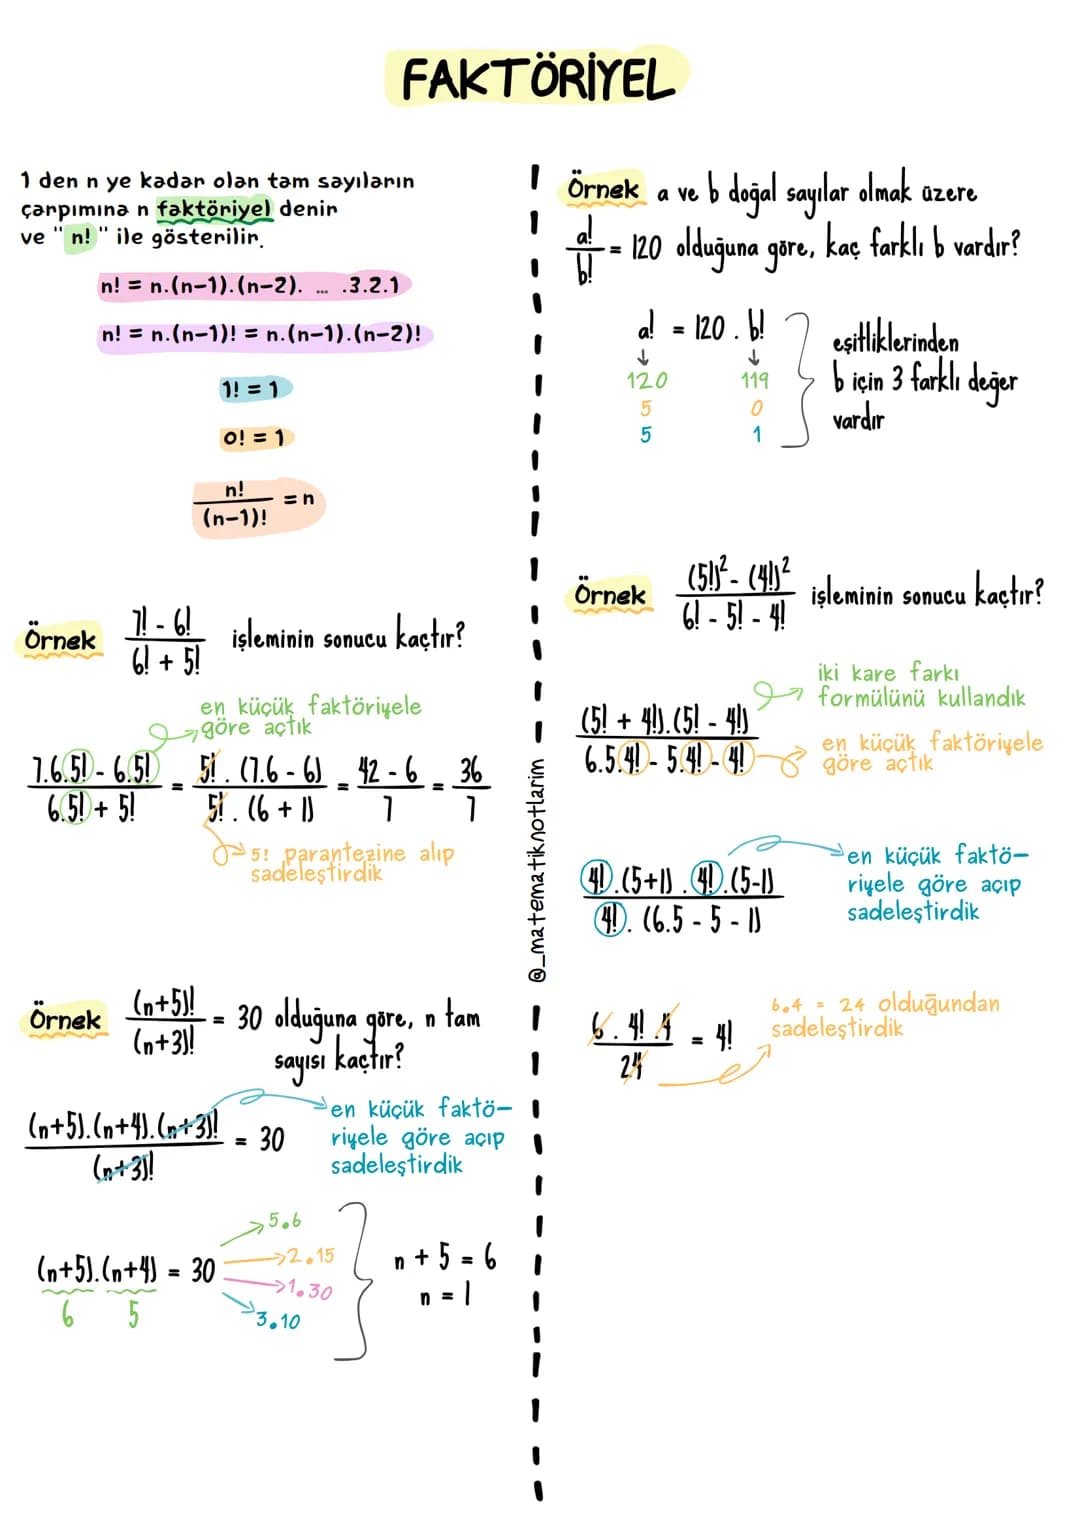 FAKTÖRİYEL
1 den n ye kadar olan tam sayıların
çarpımına n faktöriyel denir
ve "n!" ile gösterilir.
n! = n.(n-1).(n-2). ... .3.2.1
n! = n.(n-1)! = n.(n-1).(n-2)!
1! = 1
0! = 1
n!/(n-1)! = n
Örnek (7! - 6!)/(6! + 5!) işleminin sonucu kaçtır?
en küçük faktöriyele
göre açtık
(7.6.5! - 6.5!)/(6.5! + 5!) = (5! . (7.6 - 6))/(5! . (6 + 1)) = (42 - 6)/7 = 36/7
5! parantezine alıp
sadeleştirdik
Örnek (n+5)!/(n+3)! = 30 olduğuna göre, n tam
sayısı kaçtır?
((n+5).(n+4).(n+3)!)/(n+3)! = 30
en küçük faktö-
riyele göre açıp
sadeleştirdik
(n+5).(n+4) = 30
6 5
5.6
2.15
1.30
3.10
n + 5 = 6
n = 1
@_matematiknotlarim
Örnek a ve b doğal sayılar olmak üzere
a!/b! = 120 olduğuna göre, kaç farklı b vardır?
a! = 120 . b!
↓ ↓
120 119
5 0
5 1
eşitliklerinden
b için 3 farklı değer
vardır
Örnek ((5!)² - (4!)²)/(6! - 5! - 4!) işleminin sonucu kaçtır?
iki kare farkı
formülünü kullandık
((5! + 4!).(5! - 4!))/(6.5.4! - 5.4! - 4!)
en küçük faktöriyele
göre açtık
(4!.(5+1) . 4!.(5-1))/(4!. (6.5 - 5 - 1))
en küçük faktö-
riyele göre açıp
sadeleştirdik
(6 . 4! . 4)/24 = 4!
6.4 = 24 olduğundan
sadeleştirdik